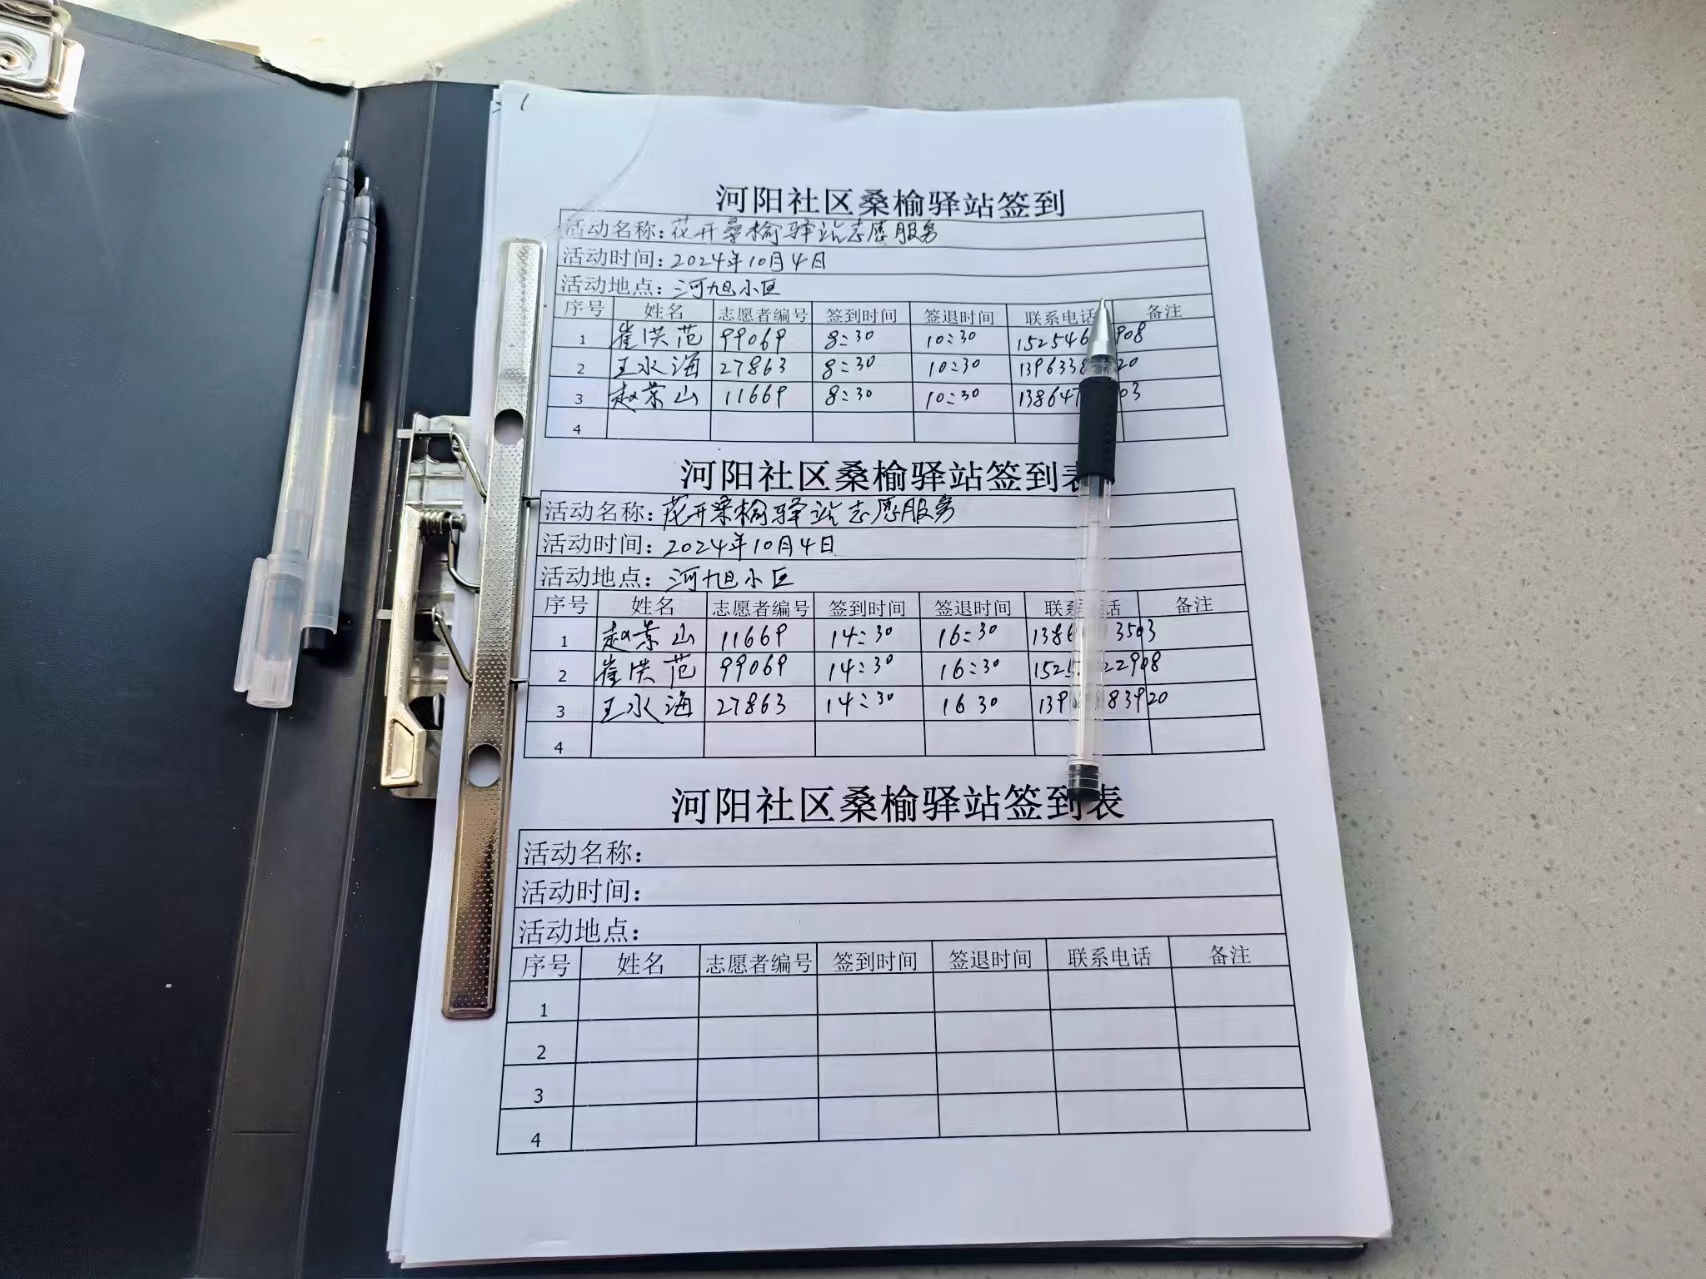 河阳社区桑榆驿站签到
活动名称:花开桑榆驿站志愿服务
活动时间:2024年10月4日
活动地点:河旭小区
序号 姓名 志愿者编号 签到时间 签退时间 联系电话 备注
1 崔洪范 99069 8:30 10:30 152546 908
2 王永海 27863 8:30 10:30 139633 20
3 赵荣山 11669 8:30 10:30 13864 03
4
河阳社区桑榆驿站签到表
活动名称:花开桑榆驿站志愿服务
活动时间:2024年10月4日
活动地点:河旭小区
序号 姓名 志愿者编号 签到时间 签退时间 联系电话 备注
1 赵荣山 11669 14:30 16:30 138 3503
2 崔洪范 99069 14:30 16:30 152 22908
3 王永海 27863 14:30 16 30 139 83920
4
河阳社区桑榆驿站签到表
活动名称:
活动时间:
活动地点:
序号 姓名 志愿者编号 签到时间 签退时间 联系电话 备注
1
2
3
4